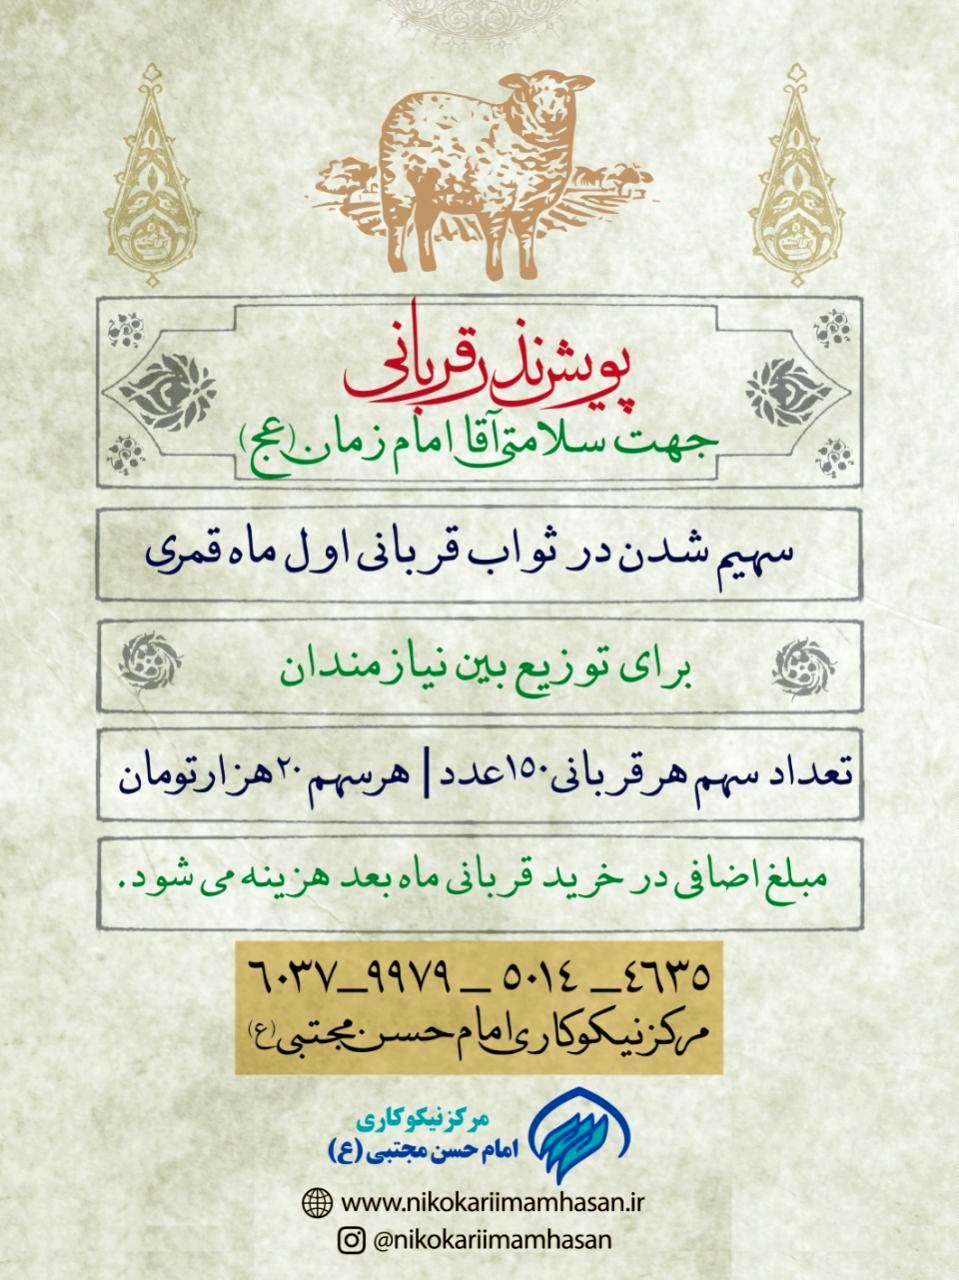 پویش نذر قربانی
جهت سلامتی آقا امام زمان (عج)
سهیم شدن در ثواب قربانی اول ماه قمری
برای توزیع بین نیازمندان
تعداد سهم هر قربانی ۱۵۰ عدد | هر سهم ۲۰ هزار تومان
مبلغ اضافی در خرید قربانی ماه بعد هزینه می شود.
۶۰۳۷_۹۹۷۹ _ ۵۰۱۴ _ ۴۶۳۵
مرکز نیکوکاری امام حسن مجتبی (ع)
مرکز نیکوکاری
امام حسن مجتبی (ع)
www.nikokariimamhasan.ir
@nikokariimamhasan